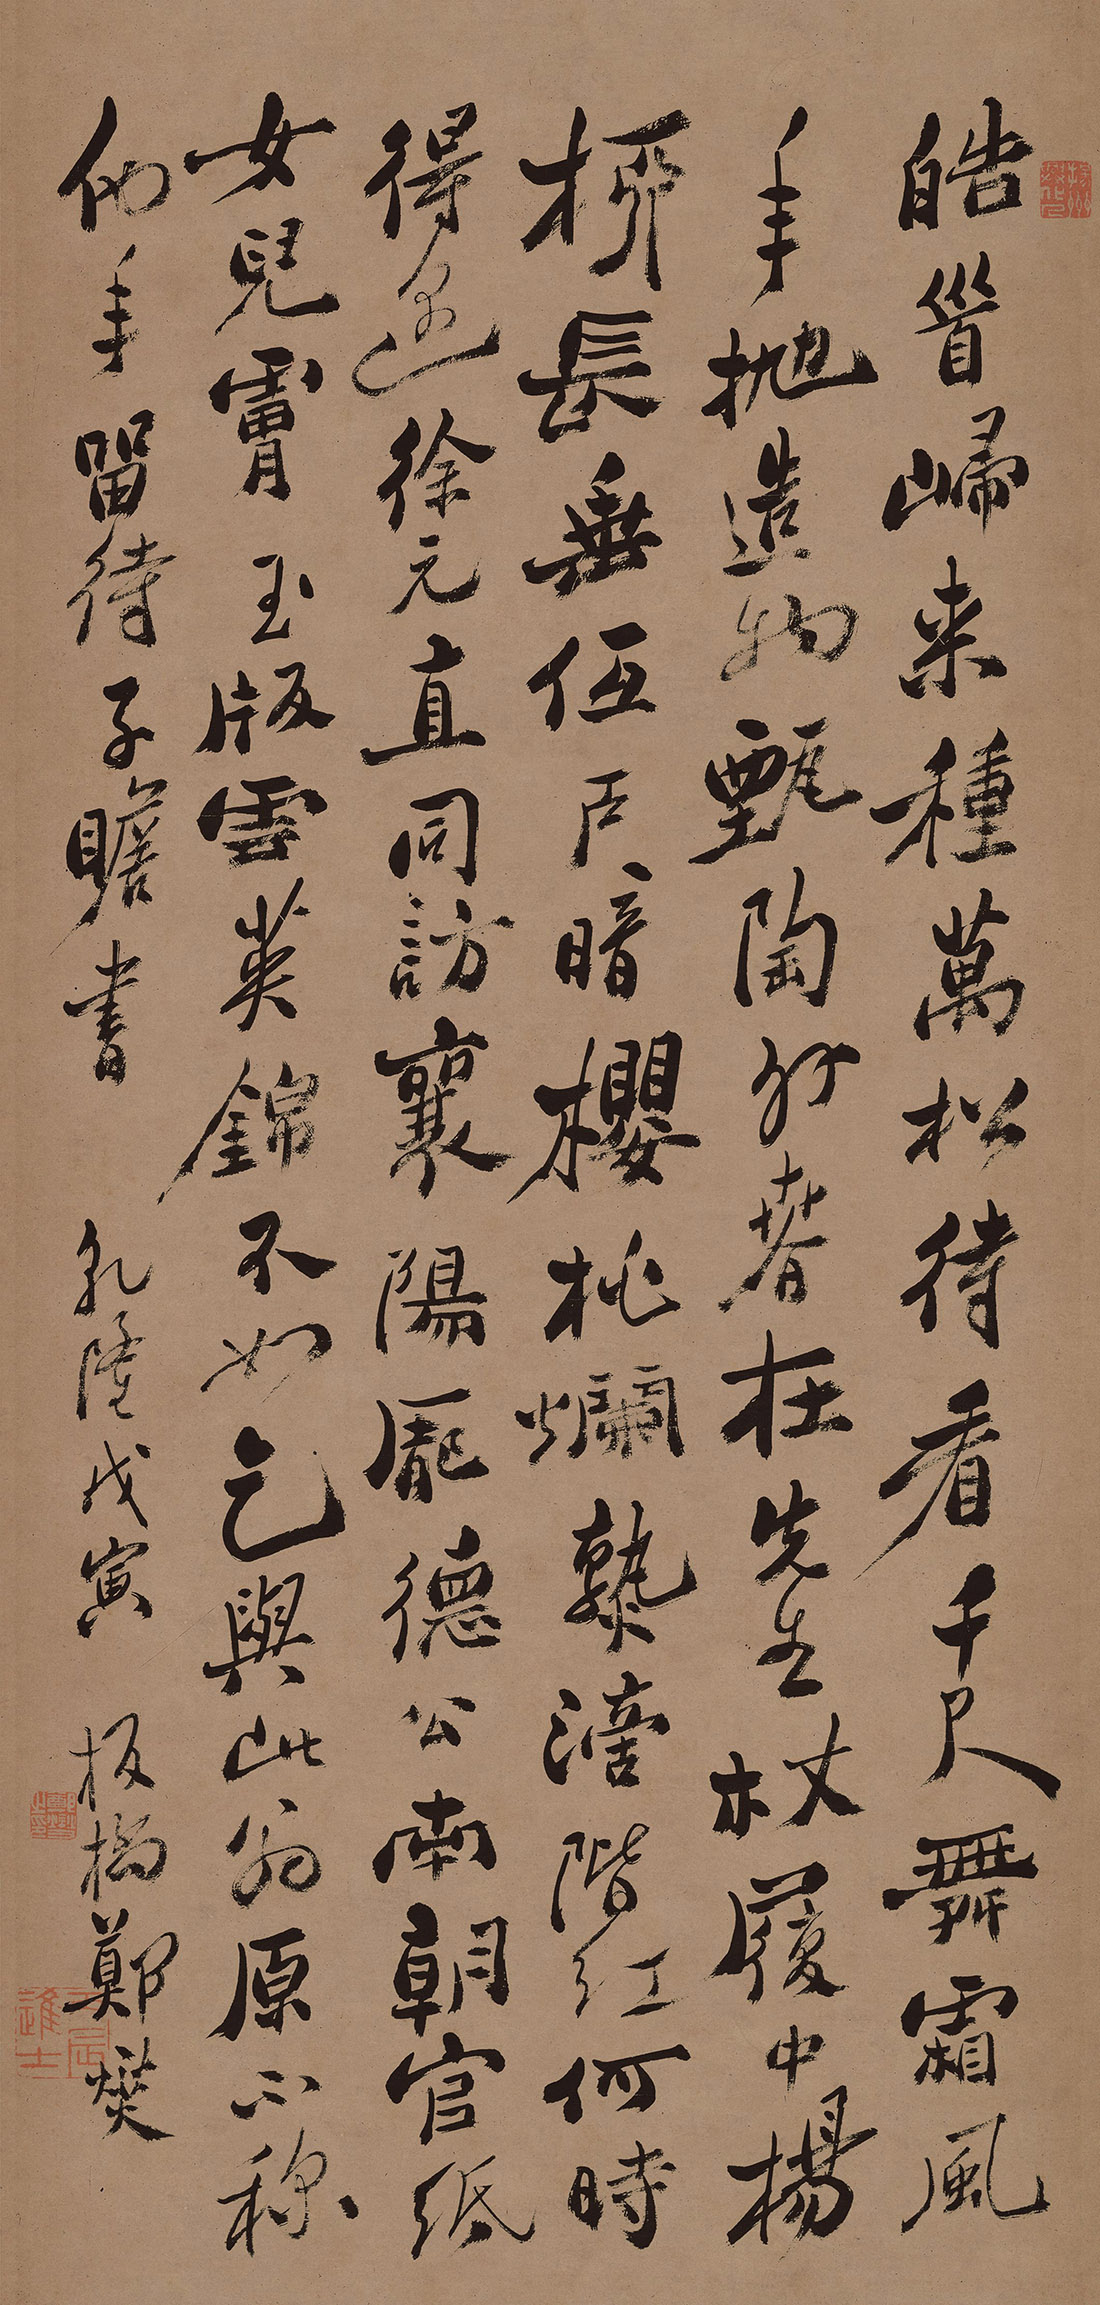 皓首歸来種萬松待看千尺舞霜風
年抛造物甄陶外春在先生杖屨中楊
柳長垂低戶暗櫻桃爛熟滴階紅何時
得徐元直同訪襄陽龐德公南朝官紙
女兒膚玉版雲英錦不如乞與此翁原不稱
他年留待子瞻書 乾隆戊寅 板橋鄭燮
丙辰進士